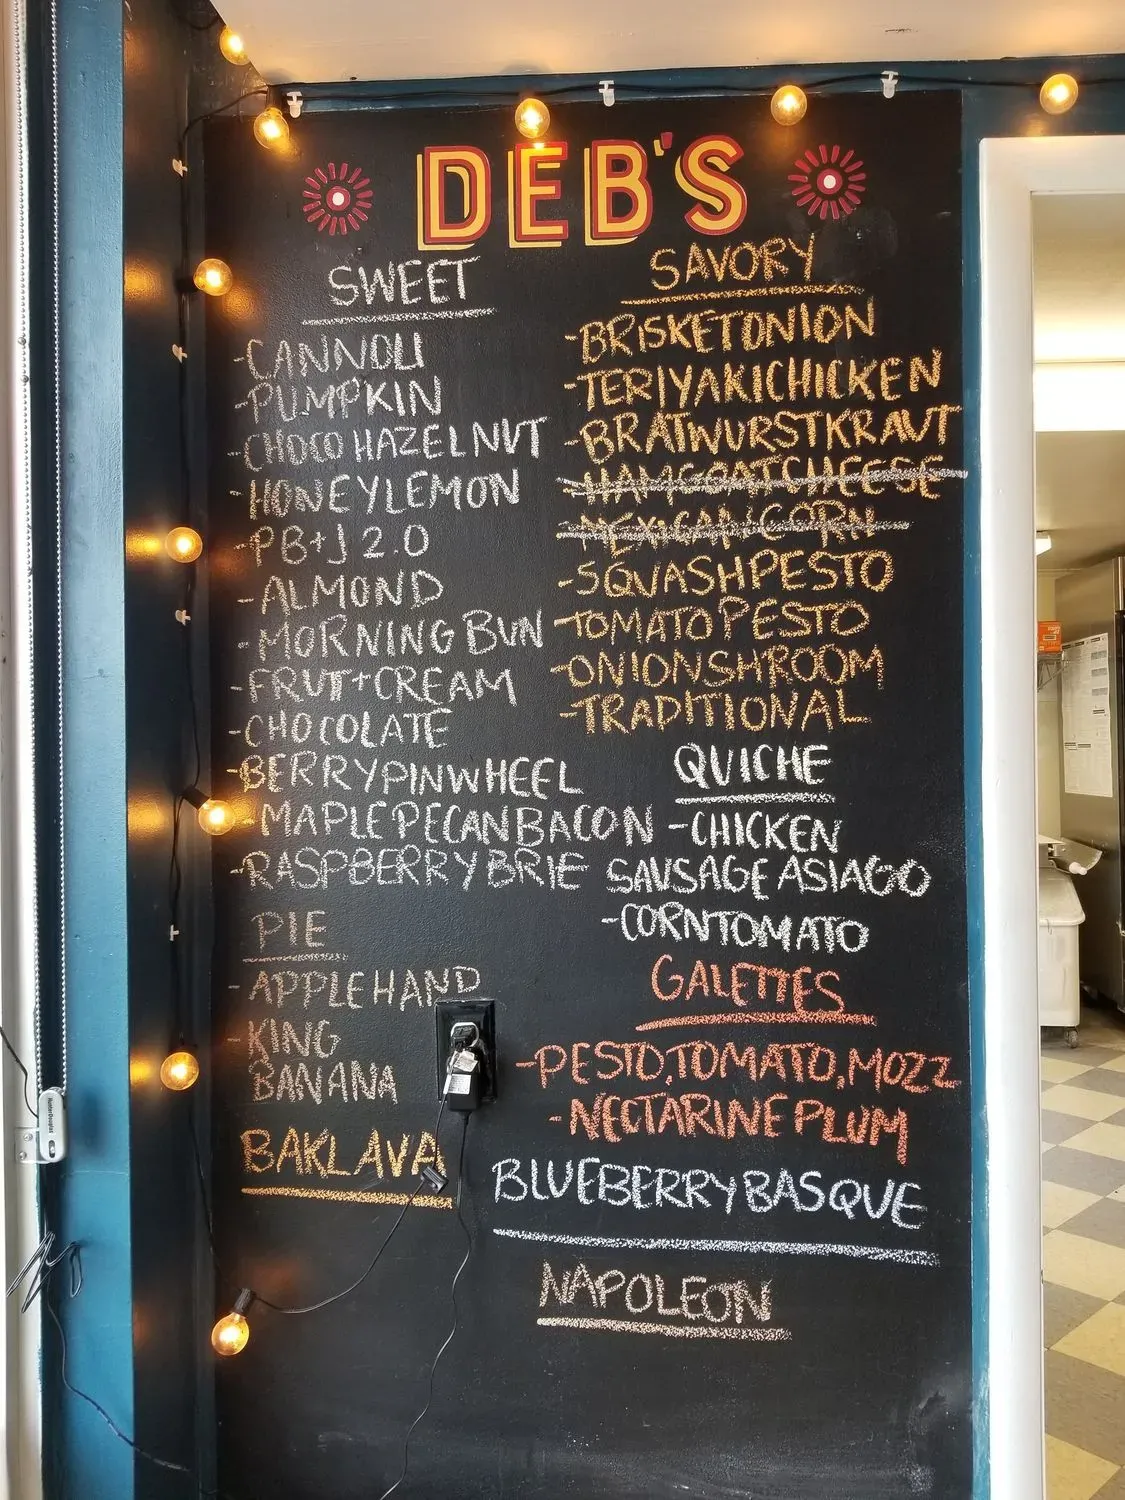 DEB'S
SWEET
-CANNOLI
-PUMPKIN
-CHOCO HAZELNUT
-HONEYLEMON
-PB+J 2.0
-ALMOND
-MORNING BUN
-FRUIT+CREAM
-CHOCOLATE
-BERRYPINWHEEL
-MAPLE PECAN BACON
-RASPBERRY BRIE
PIE
-APPLE HAND
-KING
BANANA
BAKLAVA
SAVORY
-BRISKETONION
-TERIYAKICHICKEN
-BRATWURSTKRAUT
-HAMGOATCHEESE
-MEXICAN CORN
-SQUASHPESTO
-TOMATO PESTO
-ONIONSHROOM
-TRADITIONAL
QUICHE
-CHICKEN
SAUSAGE ASIAGO
-CORNTOMATO
GALETTES
-PESTO,TOMATO,MOZZ
-NECTARINE PLUM
BLUEBERRY BASQUE
NAPOLEON
HunterDouglas